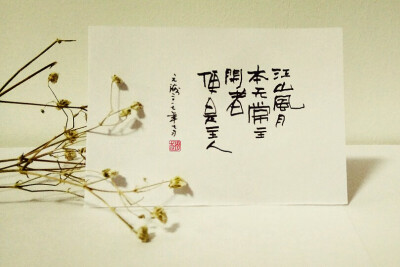 江山風月
本无常主
閑者
便是主人